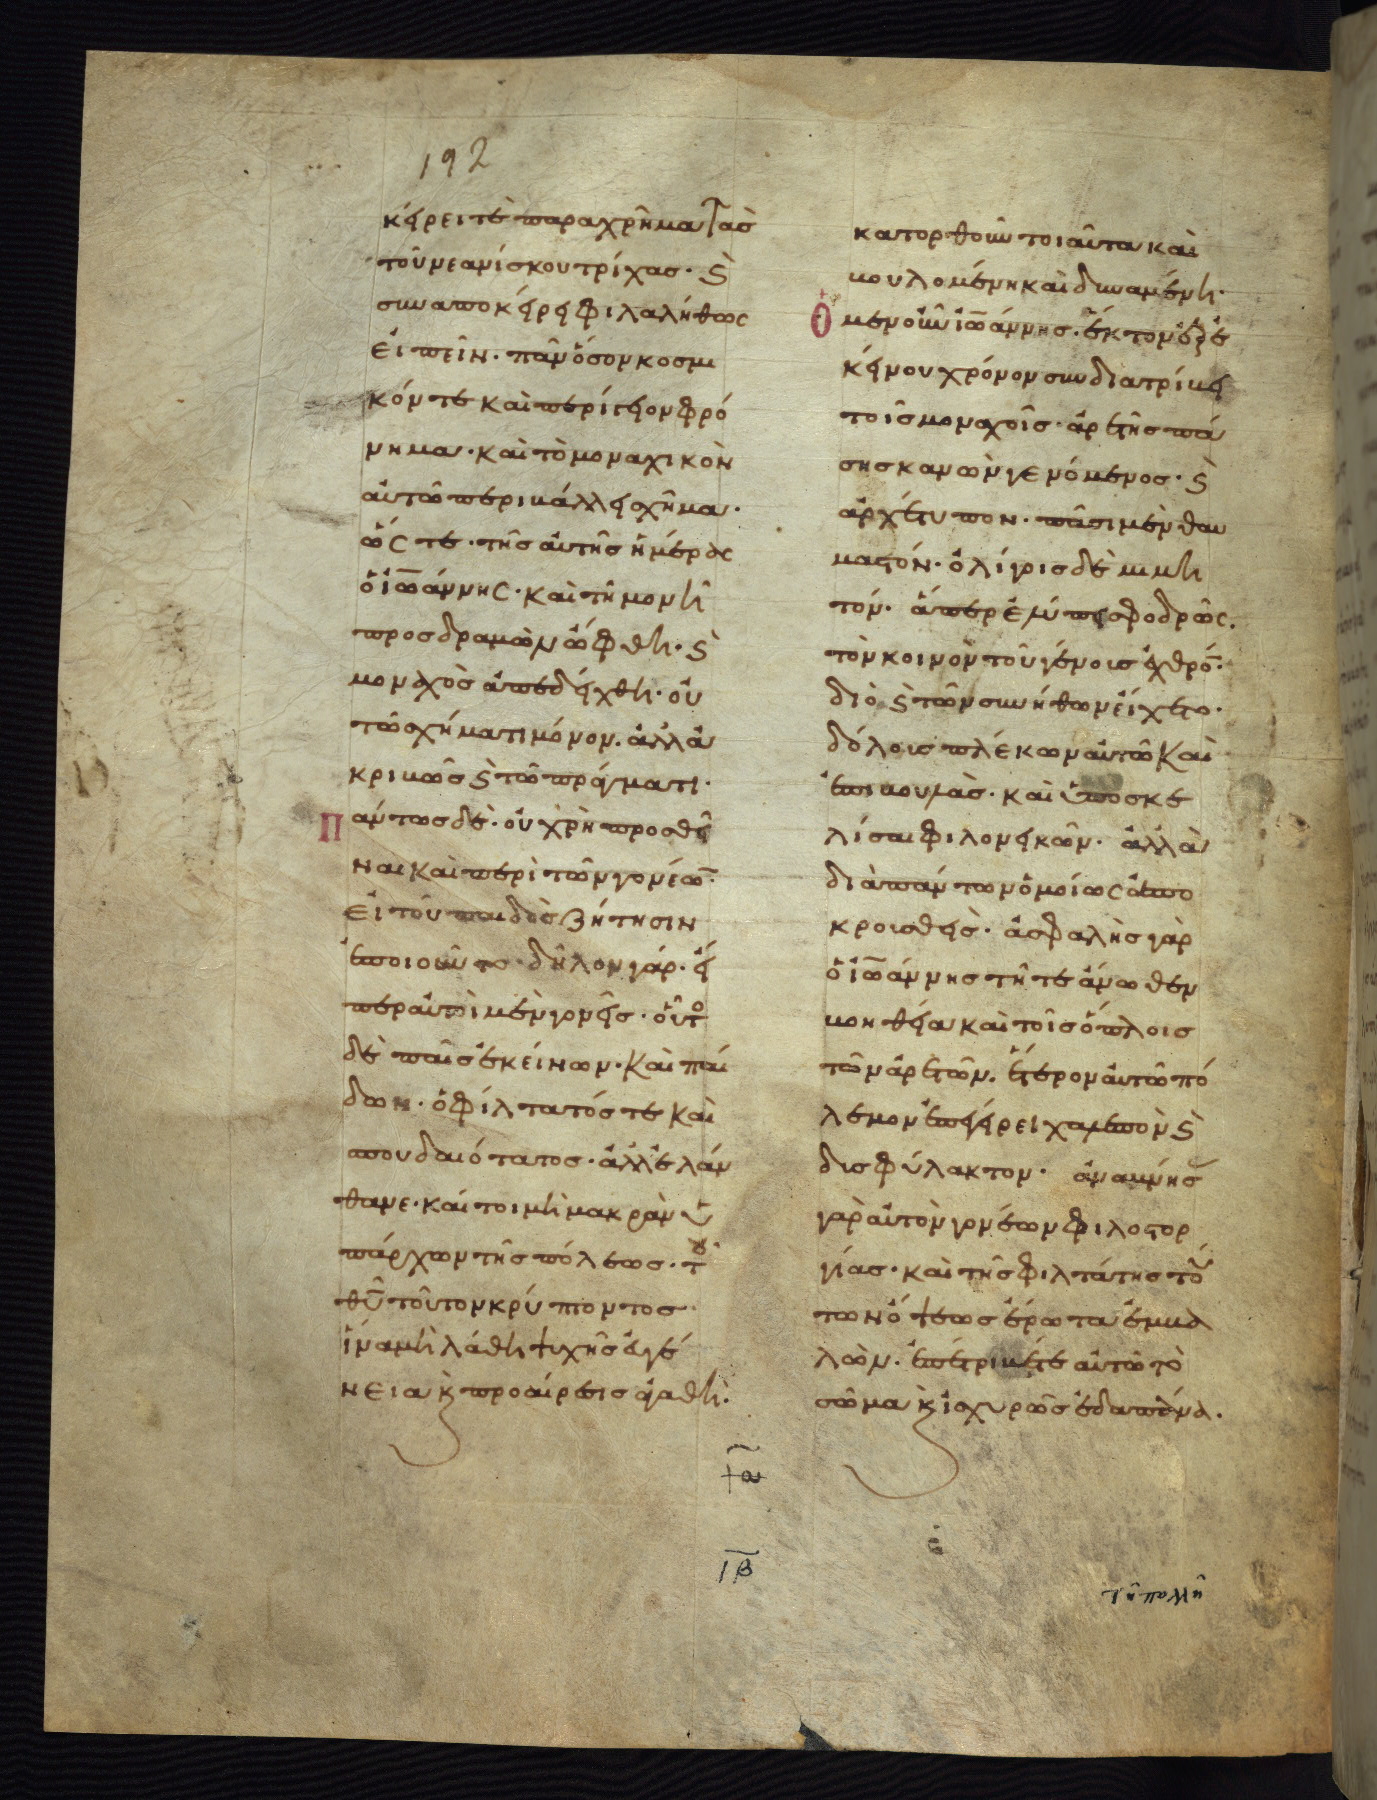 192
κείρει τὲ παραχρῆμα τὰσ
τοῦ νεανίσκου τρίχασ· ϛ̀
συναποκείρει φιλαλήθως
εἰπεῖν· πᾶν ὅσον κοσμι
κόν τε καὶ περίγειον φρό
νημα· καὶ τὸ μοναχικὸν
αὐτῶ περιβάλλει σχῆμα·
ὥς τε· τῆσ αὐτῆσ ἡμέρας
ὁ ἰω̅άννης· καὶ τῆ μονῆ
προσδραμὼν ὤφθη· ϛ̀
μοναχὸσ ἀπεδείχθη· οὐ
τῶ σχήματι μόνον. ἀλλὰ
ἀκριβῶσ ϛ̀ τῶ πράγματι·
Πάντωσ δὲ· οὐ χρὴ προσθεῖ
ναι καὶ περὶ τῶν γονέω̅·
εἰ τοῦ παιδὸσ ζήτησιν
ἐποιοῦντο· δῆλον γάρ· εἴ
περ αὐτοὶ μὲν γονεῖσ· οὗτο
δὲ παῖσ ἐκείνων· καὶ παί
δων· ὁ φίλτατόσ τε καὶ
σπουδαιότατοσ· ἀλλ' ἐλάν
θανε· καί τοι μὴ μακρὰν ὑ
πάρχων τῆσ πόλεωσ· τοῦ
θῦ τοῦτον κρύπτοντοσ·
ἵνα μὴ λάθη ψυχῆσ εὐγέ
νεια κ̀ προαίρεσισ ἀγαθὴ·
κατορθοῦν τοιαῦτα καὶ
βουλομένη καὶ δυναμένη·
Ὁ μὲν οὖν ἰω̅άννησ· ἕκτον ἐξ ἐ
κείνου χρόνον συνδιατρίβει
τοῖσ μοναχοῖσ· ἀρετῆσ πά
σησ κανὼν γενόμενοσ· ϛ̀
ἀρχέτυπον· πᾶσι μὲν θαυ
μαστόν· ὀλίγοισ δὲ μιμη
τόν· ἅπερ ἐλύπει σφοδρῶς.
τὸν κοινὸν τοῦ γένουσ ἐχθρό̅·
διὸ ϛ̀ τῶν συνήθων εἴχετο·
δόλουσ πλέκων αὐτῶ καὶ
ἐπιβουλὰσ· καὶ ὑποσκε
λίσαι φιλονεικῶν· ἀλλὰ
διὰ πάντων ὁμοίως ἀπο
κρουσθεὶσ· ἀσφαλὴσ γὰρ
ὁ ἰω̅άννησ τῆ τε ἄνωθεν
βοηθεία καὶ τοῖσ ὅπλοισ
τῶν ἀρετῶν. ἕτερον αὐτῶ πό
λεμον ἐπεγείρει χαλεπὸν ϛ̀
δυσφύλακτον· ἀναμνήσ
γὰρ αὐτὸν γονέων φιλοστορ
γίασ· καὶ τῆσ φιλτάτησ τού
των ὄψεωσ ἔρωτα ἐμβα
λὼν. ἐπέτριβέ τε αὐτῶ τὸ
σῶμα κ̀ ἰσχυρῶσ ἐδαπάνα.
ιβ